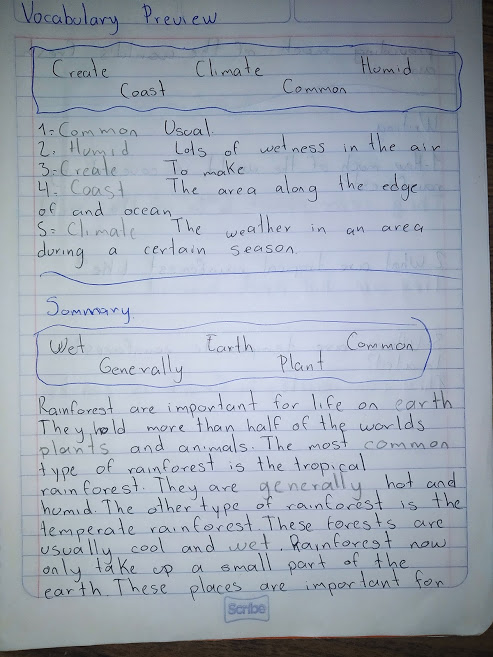 Vocabulary Preview
Create Climate Humid
Coast Common
1: Common Usual.
2. Humid Lots of wetness in the air
3: Create To make
4: Coast The area along the edge
of and ocean
5: Climate The weather in an area
during a certain season.
Summary
Wet Earth Common
Generally Plant
Rainforest are important for life on earth
They hold more than half of the worlds
plants and animals. The most common
type of rainforest is the tropical
rainforest. They are generally hot and
humid. The other type of rainforest is the
temperate rainforest. These forests are
usually cool and wet. Rainforest now
only take up a small part of the
earth. These places are important for
Scribe